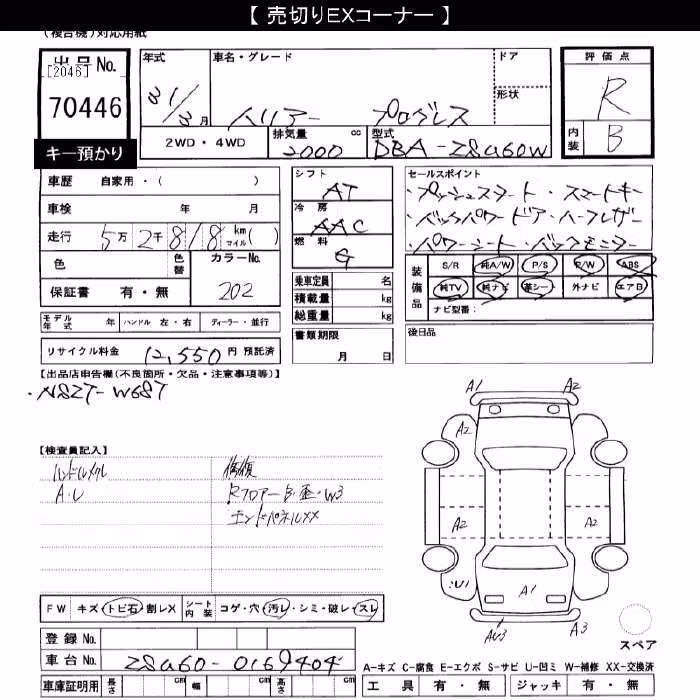 【 売切りEXコーナー 】
(複合機)対応用紙
出品No.
[2046]
70446
キー預かり
年式 車名・グレード ドア
形状
31/3月 ハリアー プログレス
2WD・4WD 排気量 cc 型式
2000 DBA-ZSU60W
評価点
R
内装 B
車歴 自家用・( )
車検 年 月
走行 5万2千818 km マイル( )
色 色替 カラーNo.
保証書 有・無 202
モデル年式 年 ハンドル 左・右 ディーラー・並行
リサイクル料金 12,550円 預託済
シフト
AT
冷房
AAC
燃料
G
乗車定員 名
積載量 kg
総重量 kg
書類期限
月 日
セールスポイント
・プッシュスタート・スマートキー
・バックパワードア・ハーフレザー
・パワーシート・バックモニター
装備品
S/R 純A/W P/S P/W ABS
純TV 純ナビ 革シート 外ナビ エアB
ナビ型番:
後日品
【出品店申告欄(不良箇所・欠品・注意事項等)】
・NSZT-W68T
【検査員記入】
ハンドルスレ 修復
A・U Rフロアー B・歪・W3
エンドパネルXX
A1 A2
A2 A2
A2 A2
U1 A1
AW3 A3
スペア
FW キズ・トビ石・割レX シート内装 コゲ・穴・汚レ・シミ・破レ・スレ
登録No.
車台No. ZSU60-0169404
車庫証明用 長さ cm 幅 cm 高さ cm
A-キズ C-腐食 E-エクボ S-サビ U-凹ミ W-補修 XX-交換済
工具 有・無 ジャッキ 有・無